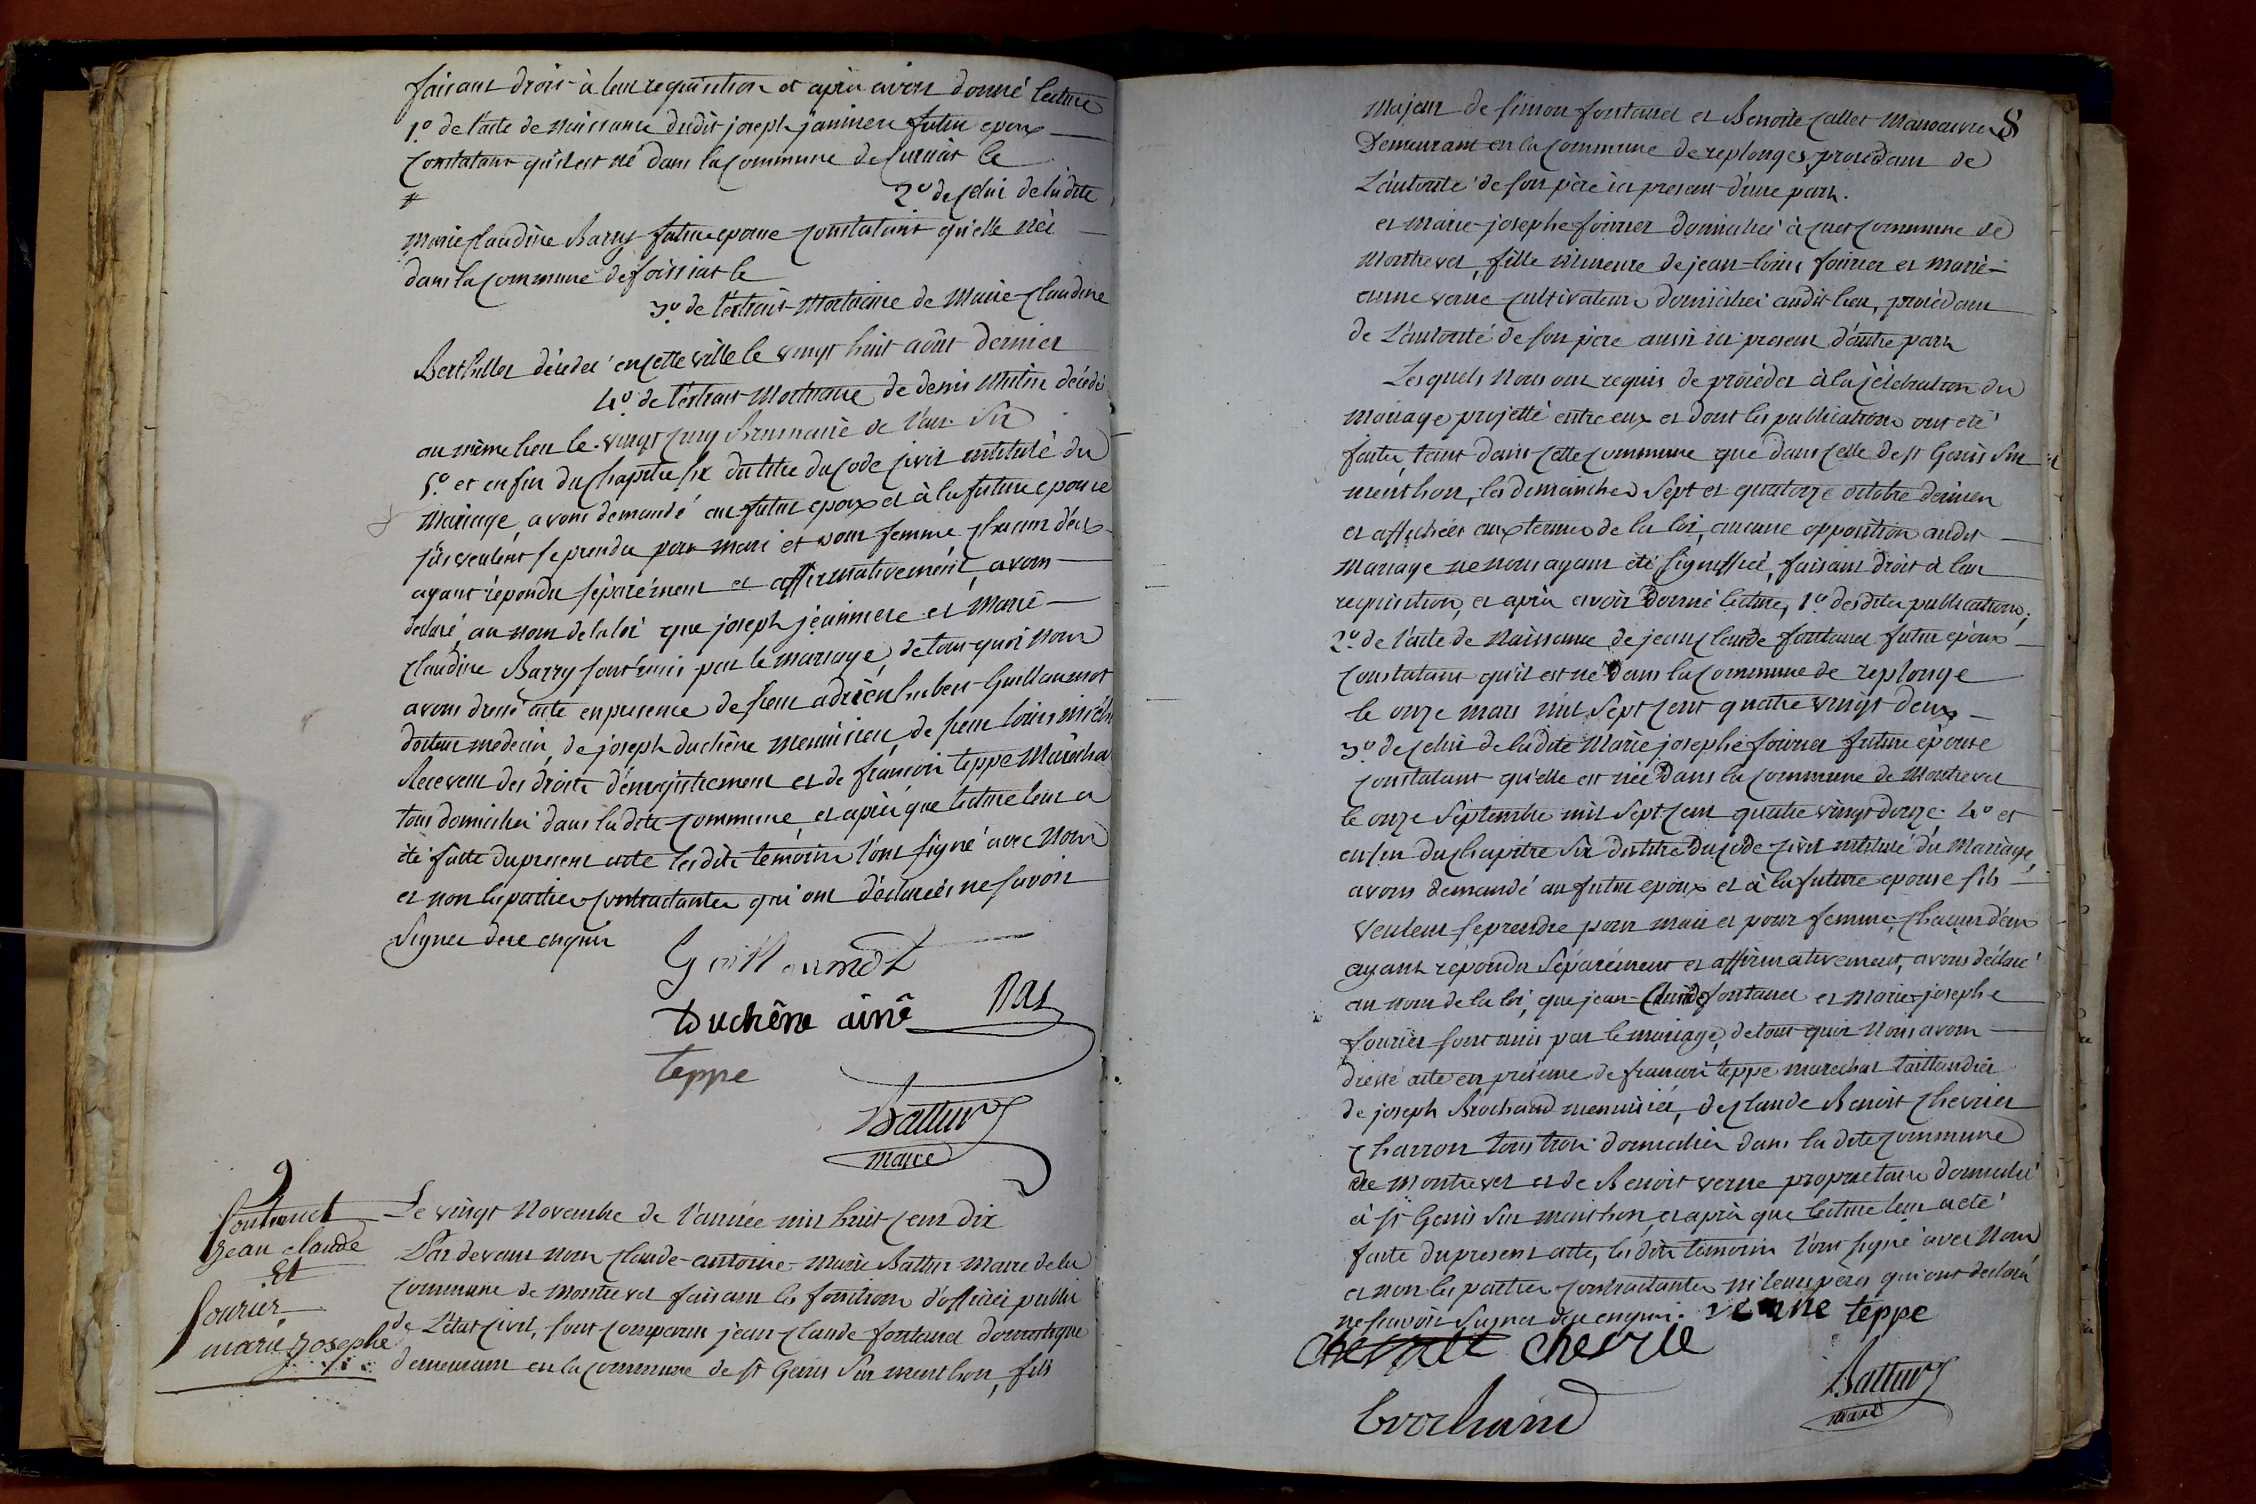 faisant droit à leur requisition et après avoir donné lecture
1.º de l'acte de naissance dudit joseph janinere futur epoux
constatant qu'il est né dans la commune de le
2º de celui de la dite
Marie Claudine Barry future epouse constatant qu'elle née
dans la commune de foissiat le
3º de l'extrait Mortuaire de Marie Claudine
Berthillet décédée en cette ville le vingt huit août dernier
4º de l'extrait Mortuaire de denis décédé
au même lieu le vingt cinq Brumaire de l'an Six
5.º et enfin du chapitre six du titre du code civil intitulé du
Mariage, avons demandé au futur epoux et à la future epouse
s'ils veulent se prendre pour mari et pour femme chacun d'eux
ayant répondu séparément et affirmativement, avons
declaré au nom de la loi que joseph jeaninere et Marie
Claudine Barry sont unis par le mariage, de tout quoi nous
avons dressé acte en presence de sieur adrien hubert Guillaumot
docteur medecin, de joseph duchêne menuisier, de sieur louis
Receveur des droits d'enregistrement et de francois teppe Maréchal
tous domiciliés dans la dite commune, et après que lecture leur a
été faite du present acte les dits temoins l'ont signé avec Nous
et non les parties contractantes qui ont déclarées ne savoir
signer de ce enquis
Guillaumot
Duchêne ainé
teppe
Battur
maire
9
fontanet
jean claude
Et
fourier
marie josephe
Le vingt Novembre de l'année mil huit cent dix
Par devant nous Claude-antoine-Marie Battur Maire de la
commune de Montrevel faisant les fonctions d'officier public
de L'état civil, sont comparus jean claude fontanel domestique
demeurant en la commune de st Genis sur menthon, fils
8
Majeur de simon fontanel et Benoite Callet Manoeuvres
Demeurant en la commune de replonges, procédant de
L'autorité de son père ici present d'une part.
et Marie-josephe fourier domiciliée à cette commune de
Montrevel, fille Mineure de jean-louis fourier et Marie-
anne verne cultivateurs domiciliés audit lieu, procédant
de L'autorité de son père aussi ici present d'autre part
Lesquels Nous ont requis de procéder à la célébration du
Mariage projetté entre eux et dont les publications ont été
faites tant dans cette commune que dans celle de st Genis Sur
menthon, les dimanches sept et quatorze octobre dernier
et affichées aux termes de la loi, aucune opposition audit
Mariage ne nous ayant été signiffiée, faisant droit à leur
requisition, et après avoir donné lecture, 1º desdites publications,
2º de l'acte de Naissance de jean Claude fontanel futur epoux
constatant qu'il est né dans la commune de replonge
le onze mars mil sept cent quatre vingt deux
3º de celui de la dite Marie josephe fourier future épouse
constatant qu'elle est née dans la commune de Montrevel
le onze septembre mil sept cent quatre vingt douze 4º et
enfin du chapitre six du titre du code civil intitulé du Mariage,
avons demandé au futur epoux et à la future epouse s'ils
veulent se prendre pour mari et pour femme, chacun d'eux
ayant répondu séparément et affirmativement, avons déclaré
au nom de la loi, que jean-Claude fontanel et Marie-josephe
fourier sont unis par le mariage, de tout quoi Nous avons
dressé acte en présence de francois teppe marechal taillandier
de joseph Brochand menuisier, de Claude Benoit Chevrier
Charron tous trois domiciliés dans la dite commune
de Montrevel et de Benoit verne proprietaire domicilié
à st Genis sur menthon, et après que lecture leur a été
faite du present acte, les dits temoins l'ont signé avec Nous
et non les parties contractantes ni leurs peres qui ont declaré
ne savoir signer de ce enquis. verne teppe
chevrie
Brochand
Battur
maire